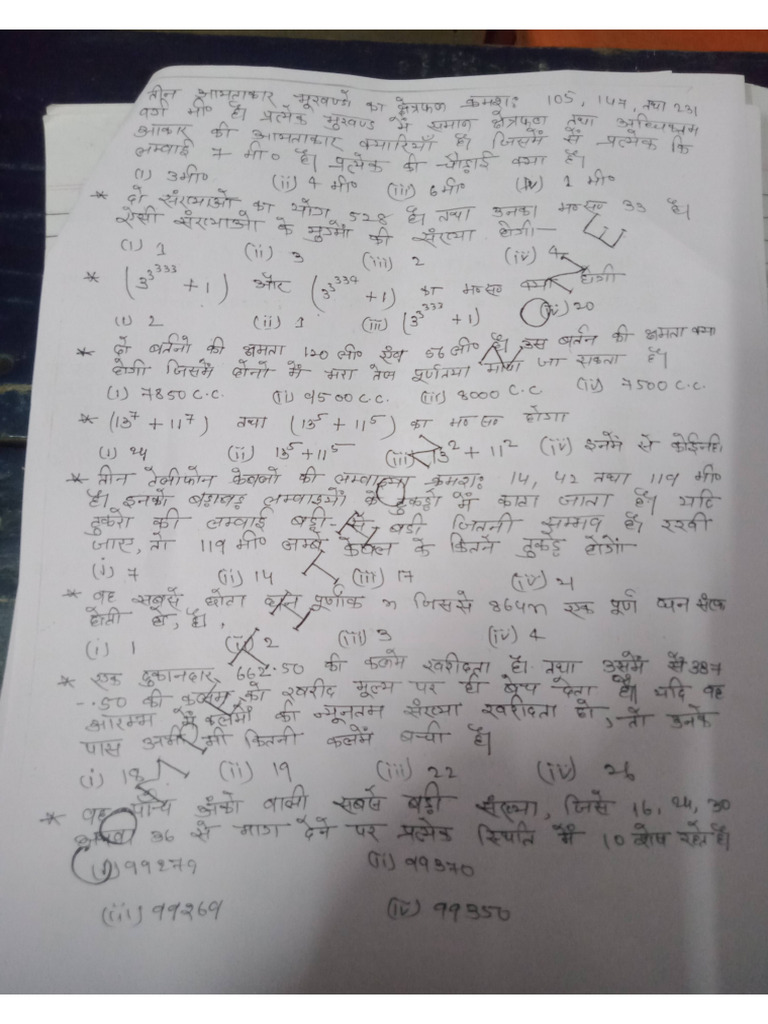 तीन आयताकार भूखण्डो का क्षेत्रफल क्रमश: 105, 147, तथा 231
वर्ग मी० है। प्रत्येक भुखण्ड में समान क्षेत्रफल तथा अधिकतम
आकार की आयताकार क्यारियाँ है। जिसमें से प्रत्येक कि
लम्बाई 7 मी० है। प्रत्येक की चौड़ाई क्या है।
(i) 3मी० (ii) 4 मी० (iii) 6मी० (iv) 1 मी०
* दो संख्याओ का योग 528 है। तथा उनका म०स० 33 है।
ऐसी संख्याओ के युग्मों की संख्या होगी—
(i) 1 (ii) 3 (iii) 2 (iv) 4
* (3^3^333 + 1) और (3^3^334 + 1) का म०स० क्या होगी
(i) 2 (ii) 1 (iii) (3^3^333 + 1) (iv) 20
* दो बर्तनो की क्षमता 120 ली० एंव 56 ली० है। उस बर्तन की क्षमता क्या
होगी जिसमें दोनो में भरा तेल पूर्णतया मापा जा सकता है।
(i) 7850 C.C. (ii) 9500 C.C. (iii) 8000 C.C (iv) 7500 C.C.
* (13^7 + 11^7) तथा (13^5 + 11^5) का म०स० होगा
(i) 24 (ii) 13^5 + 11^5 (iii) 13^2 + 11^2 (iv) इनमें से कोईनहि
* तीन टेलीफोन केबलो की लम्बाइया क्रमश: 14, 42 तथा 119 मी०
है। इनको बराबर लम्बाइयों के टुकड़ो में काटा जाता है। यदि
टुकरो की लम्बाई बड़ी-से बड़ी जितनी सम्भव है। रखी
जाए, तो 119 मी० लम्बे केबल के कितने टुकड़े होगें
(i) 7 (ii) 14 (iii) 17 (iv) 21
* वह सबसे छोटा धन पूर्णाक n जिससे 864n एक पूर्ण घन संख्
होती हो, है।
(i) 1 (ii) 2 (iii) 3 (iv) 4
* एक दुकानदार 662.50 की कलमे खरीदता है। तथा उसमें से 387
-.50 की कलम को खरीद मूल्य पर ही बेच देता है। यदि वह
आरम्भ में कलमों की न्यूनतम संख्या खरीदता हो, तो उनके
पास अभी भी कितनी कलमें बची है।
(i) 18 (ii) 19 (iii) 22 (iv) 26
* वह पाँच अंको वाली सबसे बड़ी संख्या, जिसे 16, 24, 30
अथवा 36 से भाग देने पर प्रत्येक स्थिति में 10 शेष रहते है।
(i) 99279 (ii) 99370
(iii) 99269 (iv) 99350